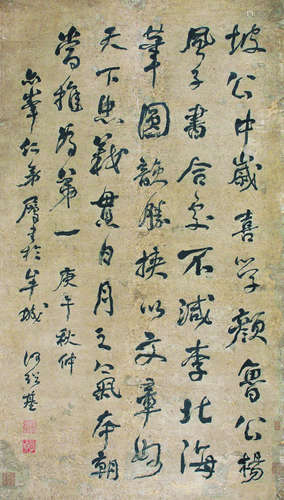 坡公中歲喜學顏魯公楊
風子書合處不減李北海
筆圓韻勝挾以文章妙
天下忠義貫日月之氣本朝
當推為第一 庚午秋仲
仁弟屬書於 何紹基